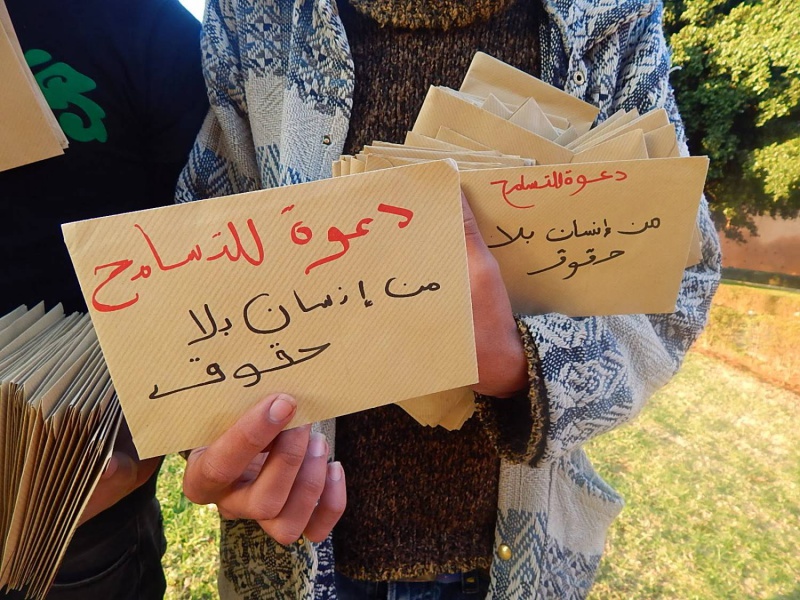 دعوة للتسامح
من إنسان بلا
حقوق
دعوة للتسامح
من إنسان بلا
حقوق